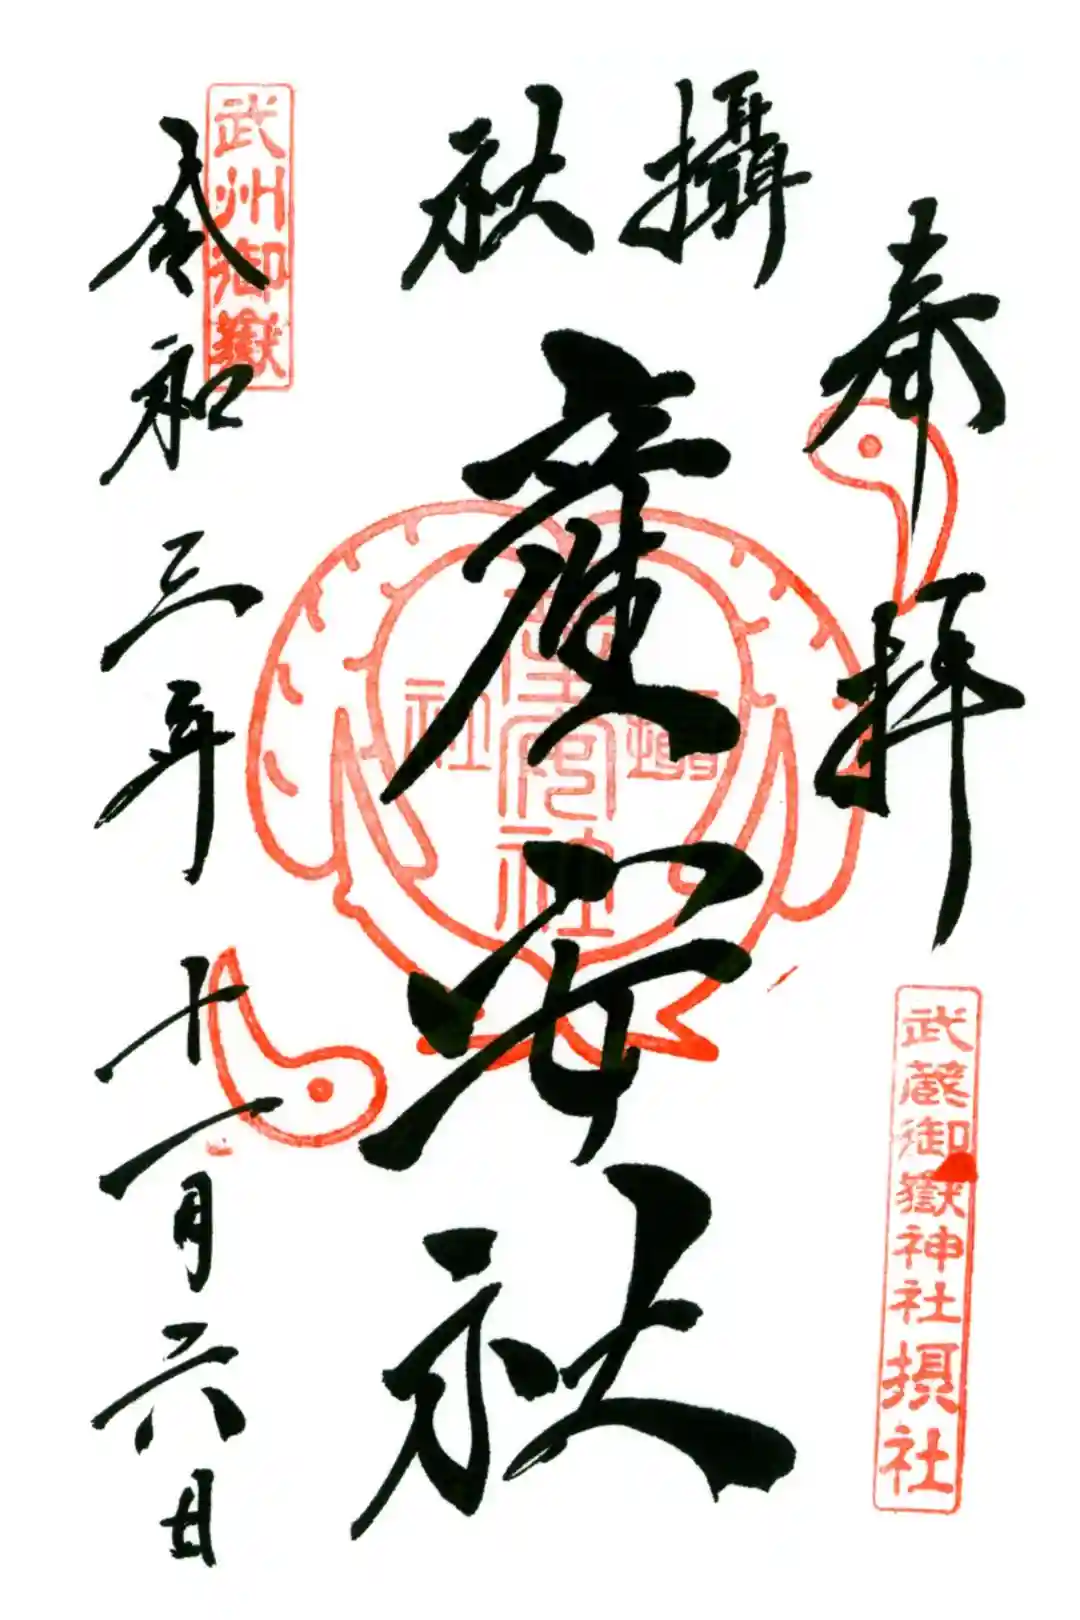 奉拝
武蔵御嶽神社摂社
攝社
産安社
産安社
武州御嶽
令和三年十一月六日